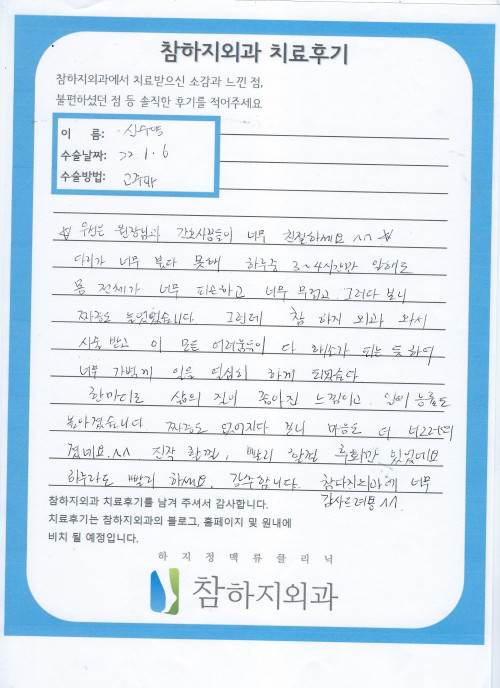 참하지외과 치료후기
참하지외과에서 치료받으신 소감과 느낀 점,
불편하셨던 점 등 솔직한 후기를 적어주세요
이 름: 신수덕
수술날짜: 22. 1. 6
수술방법: 고주파
☆ 우선은 원장님과 간호사분들이 너무 친절하세요 ^^ ☆
다리가 너무 붓다 못해 하루종 3~4시간만 일해도
몸 전체가 너무 피곤하고 너무 무겁고 그러다 보니
짜증도 늘었었습니다. 그런데 참 하지 외과 와서
시술 받고 이 모든 어려움들이 다 해소가 되는 듯하여
너무 가볍게 일을 열심히 하게 되었습니다
한마디로 삶의 질이 좋아진 느낌이고. 일에 능률도
높아졌습니다. 짜증도 없어지다 보니 마음도 더 너그러워
졌네요.^^ 진작 할껄, 빨리 할껄 후회가 있었네요
하루라도 빨리 하세요. 강추합니다. 참하지외과에 너무
감사드려용 ^^.
참하지외과 치료후기를 남겨 주셔서 감사합니다.
치료후기는 참하지외과의 블로그, 홈페이지 및 원내에
비치 될 예정입니다.
하지정맥류클리닉
참하지외과